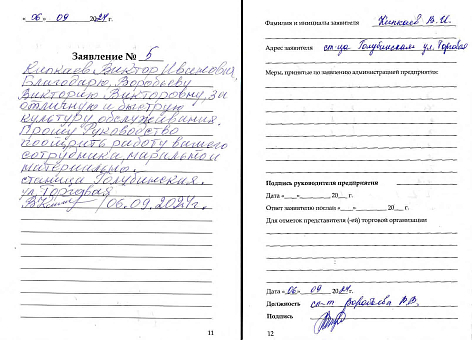 « 06 » 09 2024 г.
Заявление № 5
Кипкаев Виктор Иванович,
Благодарю Воробьеву
Викторию Викторовну, за
отличную и быструю
культуру обслуживания.
Прошу Руководство
поощрить работу вашего
сотрудника, морально и
материально.
станица Голубинская.
ул. Торговая
06.09.2024г.
11
Фамилия и инициалы заявителя Кипкаев В.И.
Адрес заявителя ст-ца Голубинская ул. Торговая
Меры, принятые по заявлению администрацией предприятия:
Подпись руководителя предприятия
Дата «___»________20___г.
Ответ заявителю послан «___»________20___г.
Для отметок представителя (-ей) торговой организации
Дата « 06 » 09 2024 г.
Должность Воробьева В.В.
Подпись
12